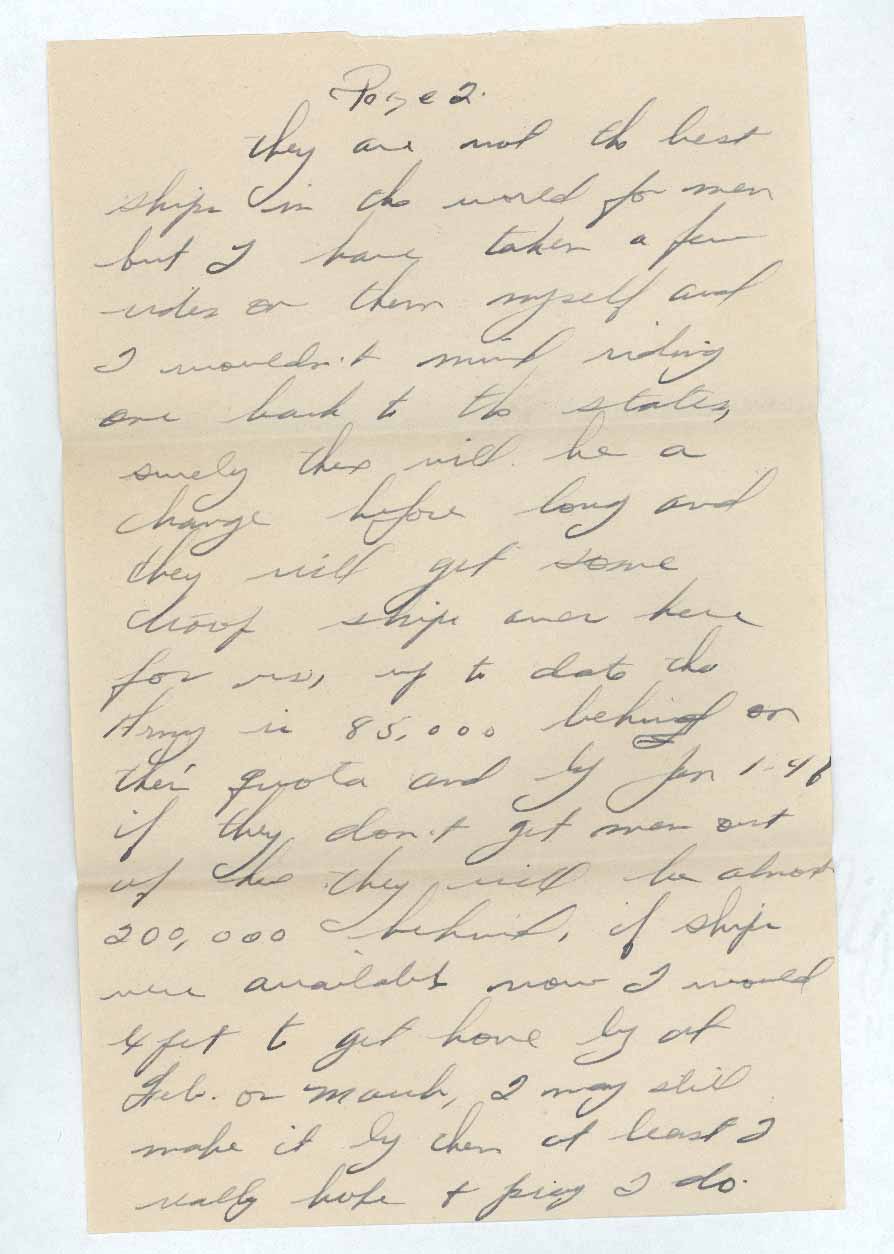 Page 2.
they are not the best
ships in the world for men
but I have taken a few
rides on them myself and
I wouldn't mind riding
one back to the states,
surely there will be a
change before long and
they will get some
troop ships over here
for us, up to date the
Army is 85,000 behind on
their quota and by Jan 1-46
if they don't get men out
of here they will be almost
200,000 behind, if ships
were available now I would
expect to get home by at
Feb. or March, I may still
make it by then at least I
really hope + pray I do.